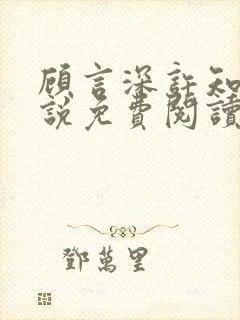 顾言深許知
說免費閱讀
鄧萬里